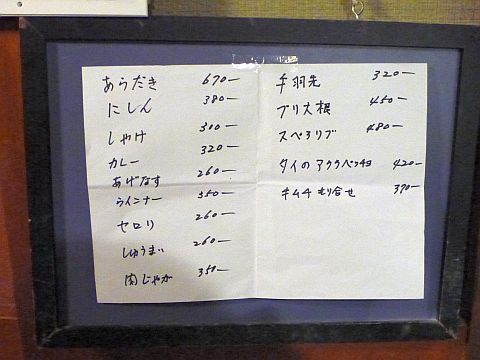 あらだき 670ー
にしん 380ー
しゃけ 300ー
カレー 320ー
あげなす 260ー
ウインナー 350ー
セロリ 260ー
しゅうまい 260ー
肉じゃが 350ー
手羽先 320ー
ブリ大根 450ー
スペアリブ 480ー
タイのアクアパッチョ 420ー
キムチもり合せ 370ー